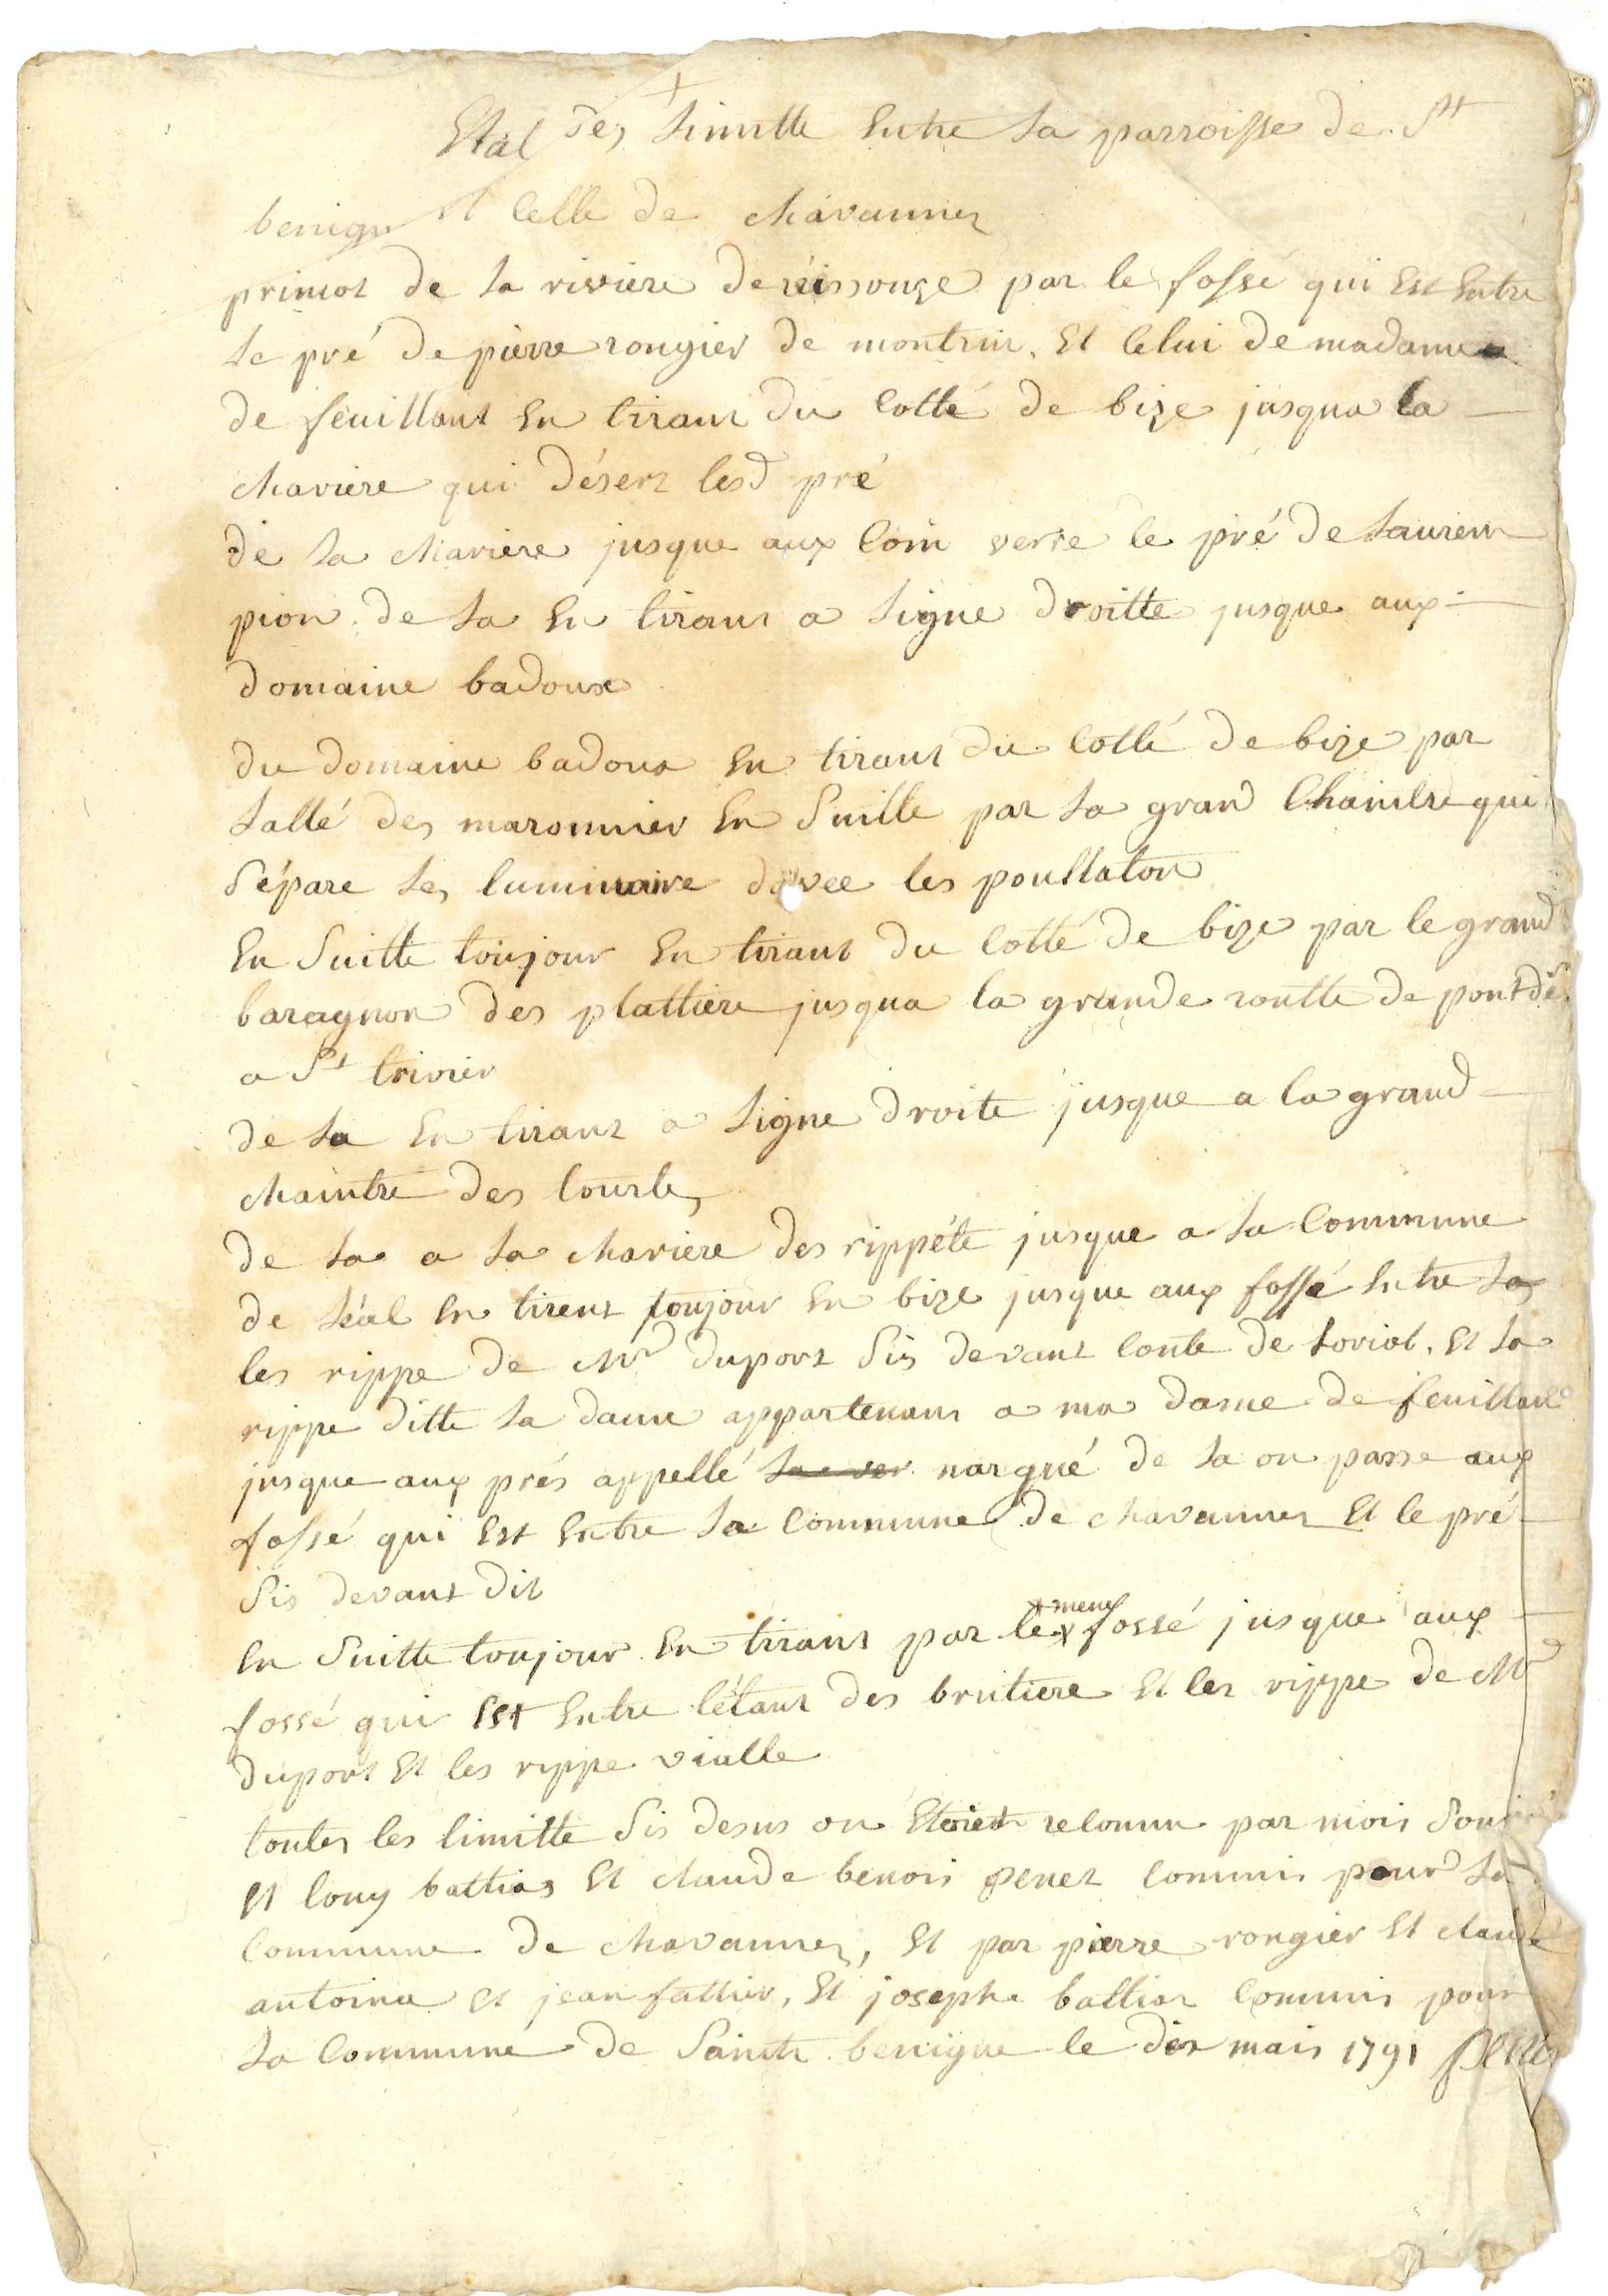 Etat des Limitte Entre La parroisse de St
benigne et Celle de chavannes
primot de La riviere de réissouze par le fossé qui Est Entre
Le pré de pierre rongier de montrin, Et Celui de madame
de feuillant En tirant du Cotté de bize jusqua la
charière qui désert lesd pré
de La chariere jusque aux Coin verse le pré de Laurent
pion. de La En tirant a Ligne droitte jusque aux
domaine badoux
du domaine badoux En tirant du Cotté de bize par
Lallé des maronnier En Suitte par La grand Chaintre qui
Sépare Les luminaire davec les poullaton
En Suitte toujour En tirant du Cotté de bize par le grand
baragnon des plattiere jusqua la grande routte de pontde
a St trivier
de La En tirant a Ligne droite jusque a la grand
chaintre des Tourte
de La a La chariere des rippéte jusque a La Commune
de Léal En tirent toujour En bize jusque aux fossé Entre Les
les rippe de Mr duport Sis devant Conte de Loriol. Et La
rippe ditte La dame appartenant a ma dame de feuillant
jusque aux prés appellé nargué de La on passe aux
fossé qui Est Entre La Commune de chavannes Et le pré
Sis devant dit
En Suitte toujour En tirant par le meme fossé jusque aux
fossé qui Est Entre létant des brutiere Et les rippe de Mr
duport Et les rippe vialle
toutes les limitte Sis desus on Etoiet reconnu par mois
Et Louy battias Et claude benois penet Commis pour La
Commune de chavannes, Et par pierre rongier Et claude
antoine et jean fattier, Et josephe battias Commis pour
La Commune de Sainte benigne le dix mais 1791 penet